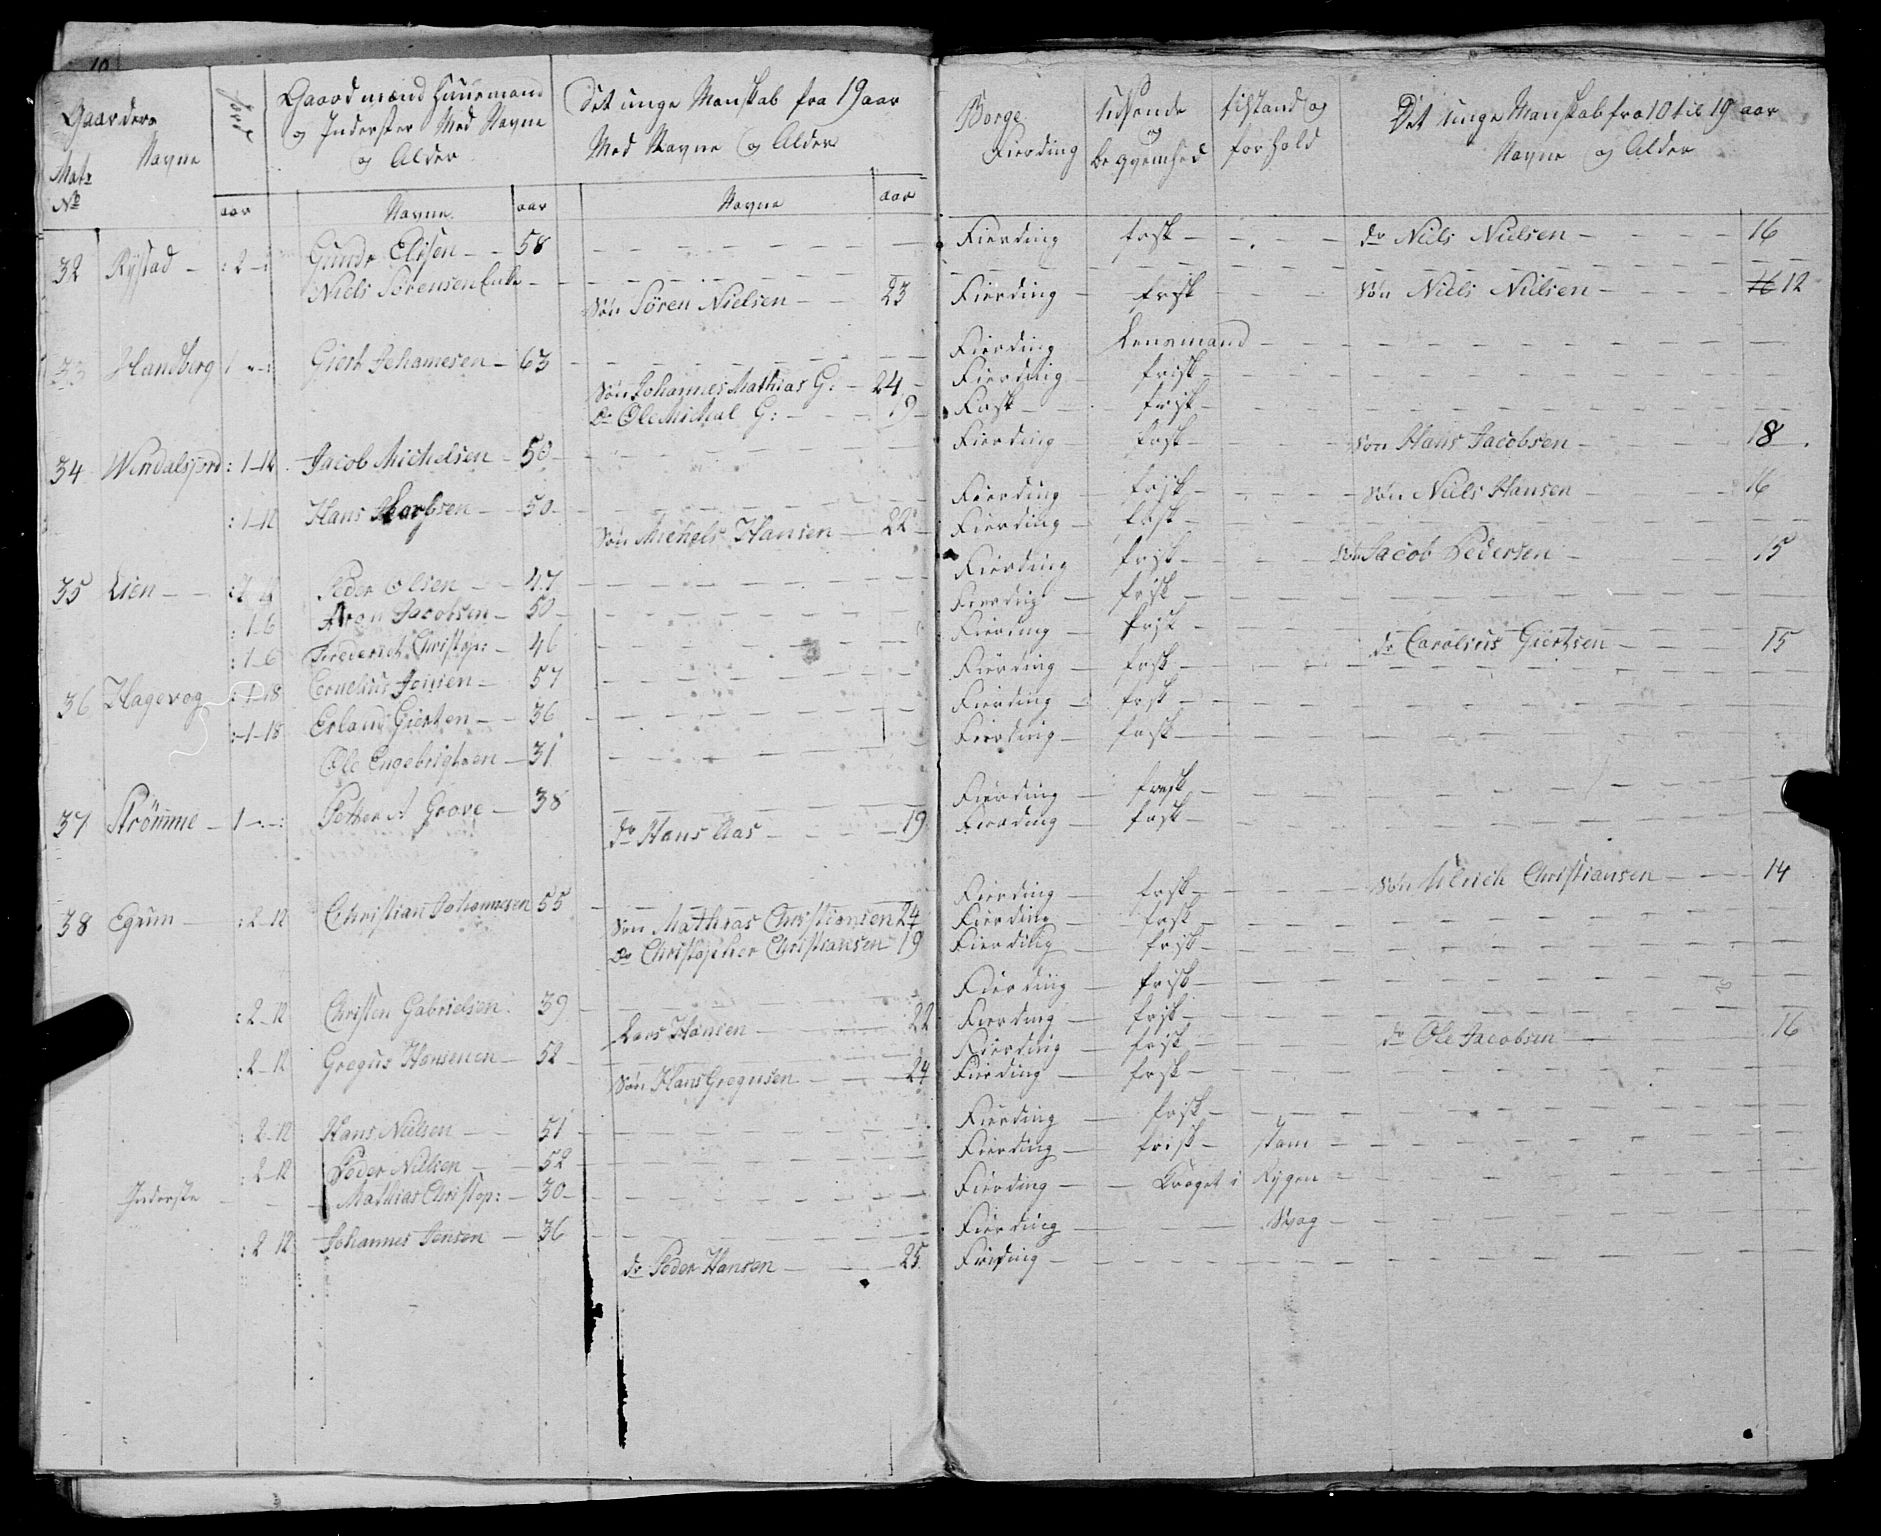 Gaardenes
Matr No
Navne
Jord
aar
Gaardmænd Huusmænd
og Inderster Med Navne
og Alder
Navne aar
Det unge Manskab fra 19 aar
Med Navne og Alder
Navne aar
32 Rystad : 2 - : Gunde Elisen 58
Niels Sørensen Enke
Søn Søren Nielsen 23
33 Handberg 1 - : Giert Johamesen 63
Søn Johannes Mathias G: 24
Do Ole Michal G: 19
34 Windalsjord : 1-12 Jacob Michelsen 50
: 1-12 Hans Jacobsen 50
Søn Michels Hansen 22
35 Lien Peder Olsen 47
: 1-6 Aron Jacobsen 50
: 1-6 Frederich Christop: 46
36 Hagevog : 1-18 Cornelius Jensen 57
: 1-18 Erland Giertsen 36
Ole Engebrigtsen 31
37 Strømme 1 - : Petter A Grove 38
do Hans Aas 19
38 Egrum : 2-12 Christian Johannesen 55
Søn Mathias Christiansen 24
Do Christopher Christiansen 19
: 2-12 Christen Gabrielsen 39
Lars Hansen 22
: 2-12 Gregus Hansen 52
Søn Hans Gregusen 24
: 2-12 Hans Nielsen 51
: 2-12 Peder Nielsen 52
Inderste Mathias Christop: 30
: 2-12 Johannes Jensen 36
do Peder Hansen 25
Borge
Fierding
Udseende
og
beqvemhed
tilstand og
forhold
Det unge Manskab fra 10 til 19 aar
Navne og Alder
Fierding frisk do Niels Nielsen 16
Fierding frisk Søn Niels Nielsen 16 12
Fierding Lensmand
Fierding frisk
Rask frisk
Fierding frisk Søn Hans Jacobsen 18
Fierding frisk Søn Niels Hansen 16
Fierding frisk
Fierding frisk Søn Jacob Pedersen 15
Fierding frisk
Fierding frisk
Fierding frisk do Carolius Giertsen 15
Fierding frisk
Fierding frisk
Fierding frisk
Fierding frisk
Fierding frisk Søn Ulrich Christiansen 14
Fierding frisk
Fierding frisk
Fierding frisk
Fierding frisk
Fierding frisk do Ole Jacobsen 16
Fierding frisk
Fierding frisk
Fierding frisk stam
Fierding Kroget i Rygen
Fierding Svag
Fierding